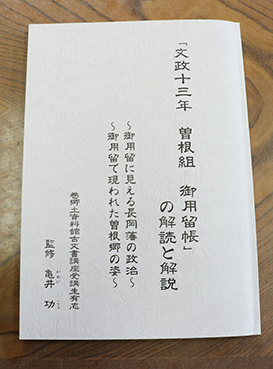 「文政十三年　曽根組　御用留帳」
の解読と解説
～御用留に見える長岡藩の政治～
～御用留で現われた曽根郷の姿～
巻郷土資料館古文書講座受講生有志
監修　亀井　功
かめい　こう